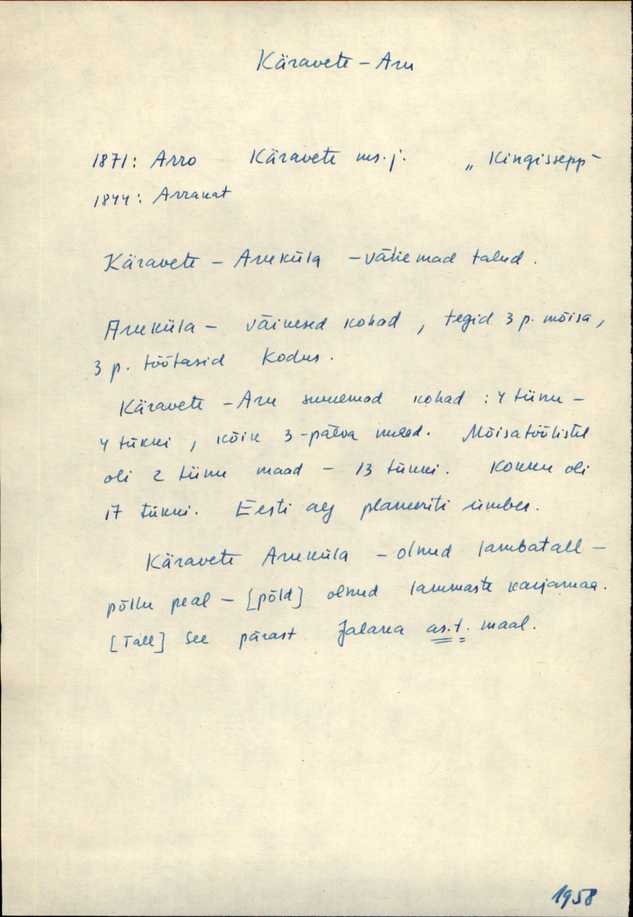 Käravete – Aru
1871: Arro Käravete ms. j. „Kingissepp"
1844: Arranat
Käravete – Aruküla – vähemad talud.
Aruküla – väikesed kohad, tegid 3 p. mõisa,
3 p. töötasid kodus.
Käravete – Aru suuremad kohad: 4 tiinu –
4 tükki, kõik 3-päeva mehed. Mõisatöölistel
oli 2 tiinu maad – 13 tükki. Kokku oli
17 tükki. Eesti aeg planeeriti ümber.
Käravete Aruküla – olnud lambatall –
põllu peal – [põld] olnud lammaste karjamaa.
[Tall] See pärast Jalaka as.t. maal.
1958